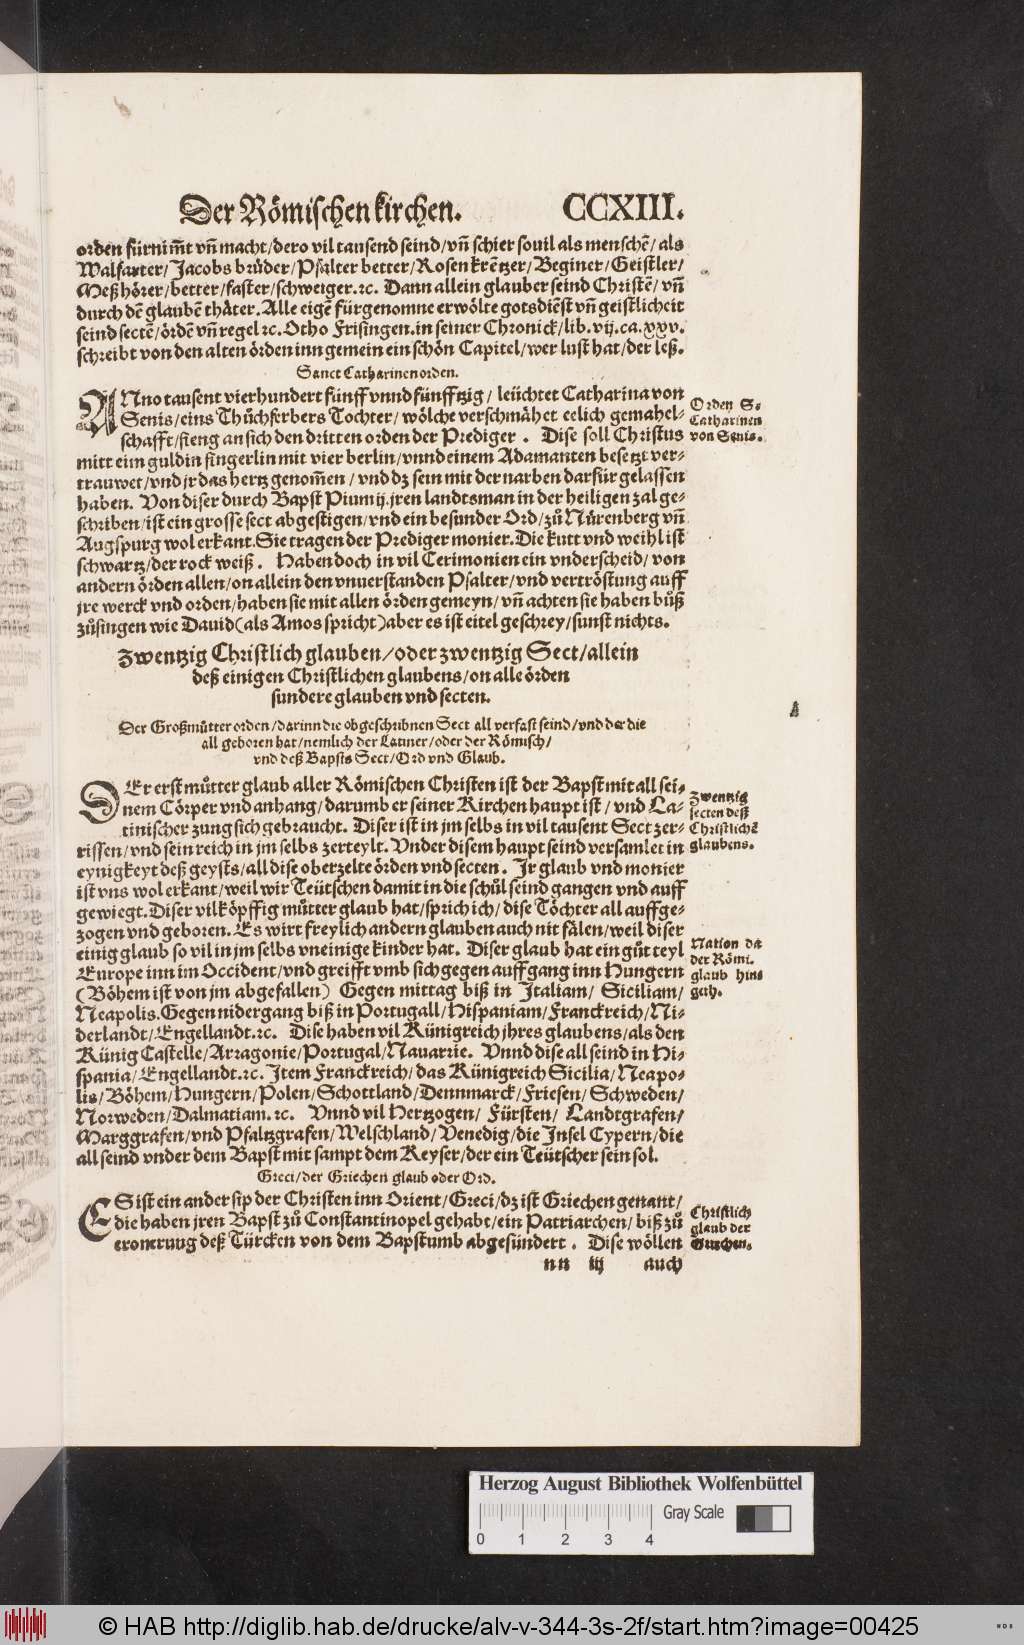 Der Römischen kirchen. CCXIII.
orden fürnim̃t vñ macht/dero vil tausend seind/vñ schier souil als menschẽ/als
Walfarter/Jacobs brüder/Psalter better/Rosenkrẽtzer/Beginer/Geistler/
Meß hörer/better/faster/schweiger.ꝛc. Dann allein glauber seind Christẽ/vñ
durch dẽ glaubẽ thäter. Alle eigẽ fürgenomne erwölte gotsdiẽst vñ geistlicheit
seind sectẽ/ördẽ vñ regel ꝛc. Otho Frisingen.in seiner Chronick/lib.vij.ca.xxv.
schreibt von den alten örden inn gemein ein schön Capitel/wer lust hat/der leß.
Sanct Catharinen orden.
ANno tausent vierhundert fünff vnnd fünfftzig/ leüchtet Catharina von
Senis/eins Thůchferbers Tochter/wölche verschmähet eelich gemahel-
schafft/fieng an sich den dritten orden der Prediger. Dise soll Christus
mitt eim guldin fingerlin mit vier berlin/vnnd einem Adamanten besetzt ver-
trauwet/vnd jr das hertz genom̃en/vnd dz sein mit der narben darfür gelassen
haben. Von diser durch Bapst Pium ij.jren landtsman in der heiligen zal ge-
schriben/ist ein grosse sect abgestigen/vnd ein besunder Ord/zů Nürenberg vñ
Augspurg wol erkant. Sie tragen der Prediger monier. Die kutt vnd weihl ist
schwartz/der rock weiß. Haben doch in vil Cerimonien ein vnderscheid/von
andern örden allen/on allein den vnuerstanden Psalter/vnd vertröstung auff
jre werck vnd orden/haben sie mit allen örden gemeyn/vñ achten sie haben bůß
zůsingen wie David(als Amos spricht)aber es ist eitel geschrey/sunst nichts.
Orden S.
Catharinen
von Senis.
Zwentzig Christlich glauben/oder zwentzig Sect/allein
deß einigen Christlichen glaubens/on alle örden
sundere glauben vnd secten.
Der Großmůtter orden/darinn die obgeschribnen Sect all verfast seind/vnd der die
all geboren hat/nemlich der Latiner/oder der Römisch/
vnd deß Bapsts Sect/Ord vnd Glaub.
DEr erst můtter glaub aller Römischen Christen ist der Bapst mit all sei-
nem Cörper vnd anhang/darumb er seiner Kirchen haupt ist/ vnd La-
tinischer zung sich gebraucht. Diser ist in jm selbs in vil tausent Sect zer-
rissen/vnd sein reich in jm selbs zerteylt. Vnder disem haupt seind versamlet in
eynigkeyt deß geysts/all dise oberzelte örden vnd secten. Jr glaub vnd monier
ist vns wol erkant/weil wir Teütschen damit in die schůl seind gangen vnd auff
gewiegt. Diser vilköpffig můtter glaub hat/sprich ich/dise Töchter all auffge-
zogen vnd geboren. Es wirt freylich andern glauben auch nit fälen/weil diser
einig glaub so vil in jm selbs vneinige kinder hat. Diser glaub hat ein gůt teyl
Europe inn im Occident/vnd greifft vmb sich gegen auffgang inn Hungern
(Böhem ist von jm abgefallen) Gegen mittag biß in Italiam/ Siciliam/
Neapolis. Gegen nidergang biß in Portugall/Hispaniam/Franckreich/Ni-
derlandt/Engellandt.ꝛc. Dise haben vil Künigreich jhres glaubens/als den
Künig Castelle/Arragonie/Portugal/Nauarrie. Vnnd dise all seind in Hi-
spania/Engellandt.ꝛc. Item Franckreich/das Künigreich Sicilia/Neapo-
lis/Böhem/Hungern/Polen/Schottland/Dennmarck/Friesen/Schweden/
Norweden/Dalmatiam.ꝛc. Vnnd vil Hertzogen/ Fürsten/ Landtgrafen/
Marggrafen/vnd Pfaltzgrafen/Welschland/Venedig/die Insel Cypern/die
all seind vnder dem Bapst mit sampt dem Keyser/der ein Teütscher sein sol.
Zwentzig
secten deß
Christlichẽ
glaubens.
Nation da
der Römi.
glaub hin-
geth.
Greci/der Griechen glaub oder Ord.
ES ist ein ander sip der Christen inn Orient/Greci/dz ist Griechen genant/
die haben jren Bapst zů Constantinopel gehabt/ein Patriarchen/ biß zů
eroberung deß Türcken von dem Bapstumb abgesündert. Dise wöllen
Christlich
glaub der
Griechen.
nn iij auch
Herzog August Bibliothek Wolfenbüttel
0 1 2 3 4 Gray Scale
© HAB http://diglib.hab.de/drucke/alv-v-344-3s-2f/start.htm?image=00425